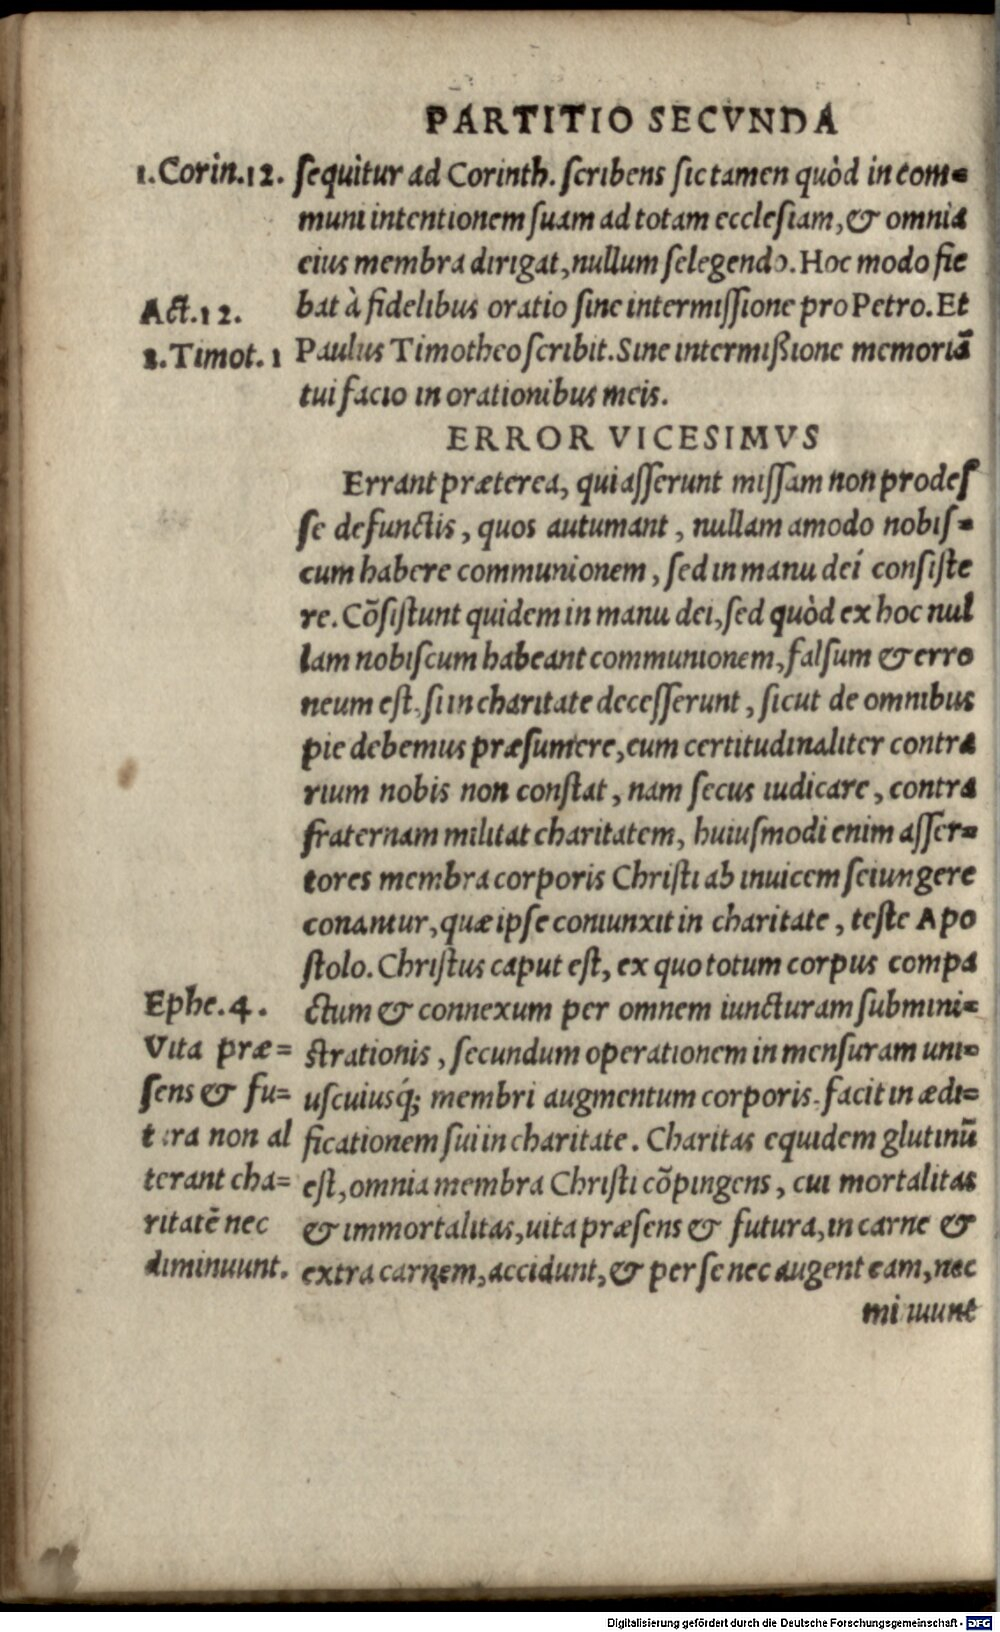 PARTITIO SECVNDA
1.Corin.12. ſequitur ad Corinth. ſcribens ſic tamen quòd in com=
muni intentionem ſuam ad totam eccleſiam, & omnia
eius membra dirigat, nullum ſelegendo. Hoc modo fie
Act.12. bat à fidelibus oratio ſine intermiſſione pro Petro. Et
2.Timot. 1 Paulus Timotheo ſcribit. Sine intermißione memoriã
tui facio in orationibus meis.
ERROR VICESIMVS
Errant præterea, qui aſſerunt miſſam non prodeſ
ſe defunctis, quos autumant, nullam amodo nobiſ=
cum habere communionem, ſed in manu dei conſiſte
re. Cõſiſtunt quidem in manu dei, ſed quòd ex hoc nul
lam nobiſcum habeant communionem, falſum & erro
neum eſt, ſi in charitate deceſſerunt, ſicut de omnibus
pie debemus præſumere, cum certitudinaliter contra
rium nobis non conſtat, nam ſecus iudicare, contra
fraternam militat charitatem, huiuſmodi enim aſſer=
tores membra corporis Chriſti ab inuicem ſeiungere
conantur, quæ ipſe coniunxit in charitate, teſte Apo
ſtolo. Chriſtus caput eſt, ex quo totum corpus compa
Ephe.4. ctum & connexum per omnem iuncturam ſubmini=
Vita præ= ſtrationis, ſecundum operationem in menſuram uni=
ſens & fu= uſcuiusq́; membri augmentum corporis facit in ædi=
tura non al ficationem ſui in charitate. Charitas equidem glutinũ
terant cha= eſt, omnia membra Chriſti cõpingens, cui mortalitas
ritatẽ nec & immortalitas, uita præſens & futura, in carne &
diminuunt. extra carnem, accidunt, & per ſe nec augent eam, nec
minuunt
Digitalisierung gefördert durch die Deutsche Forschungsgemeinschaft - DFG